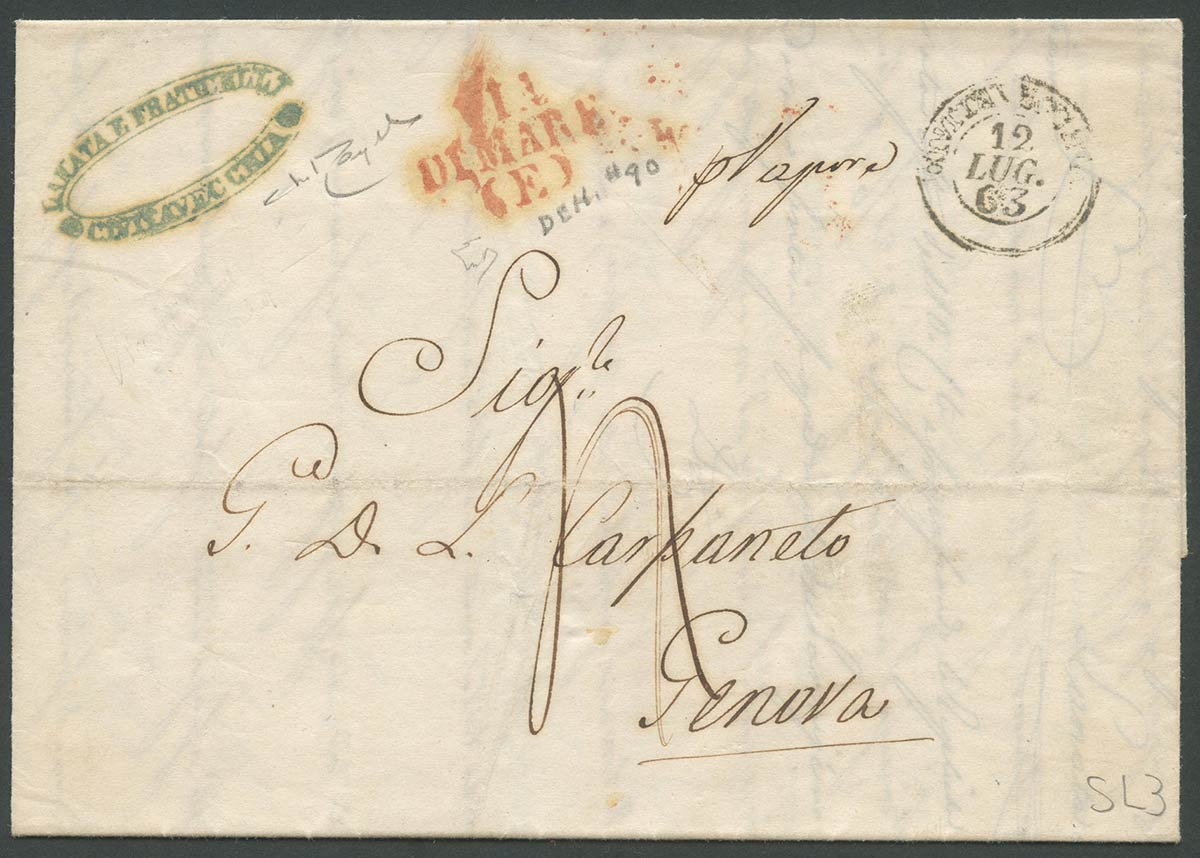 E FRATICELLI
CIVITAVECCHIA
DI MARE
(E)
DEH. #90
p Vapore
CIVITAVECCHIA
12
LUG.
63
Sig.re
G. D. L. Carpaneto
Genova
SL3